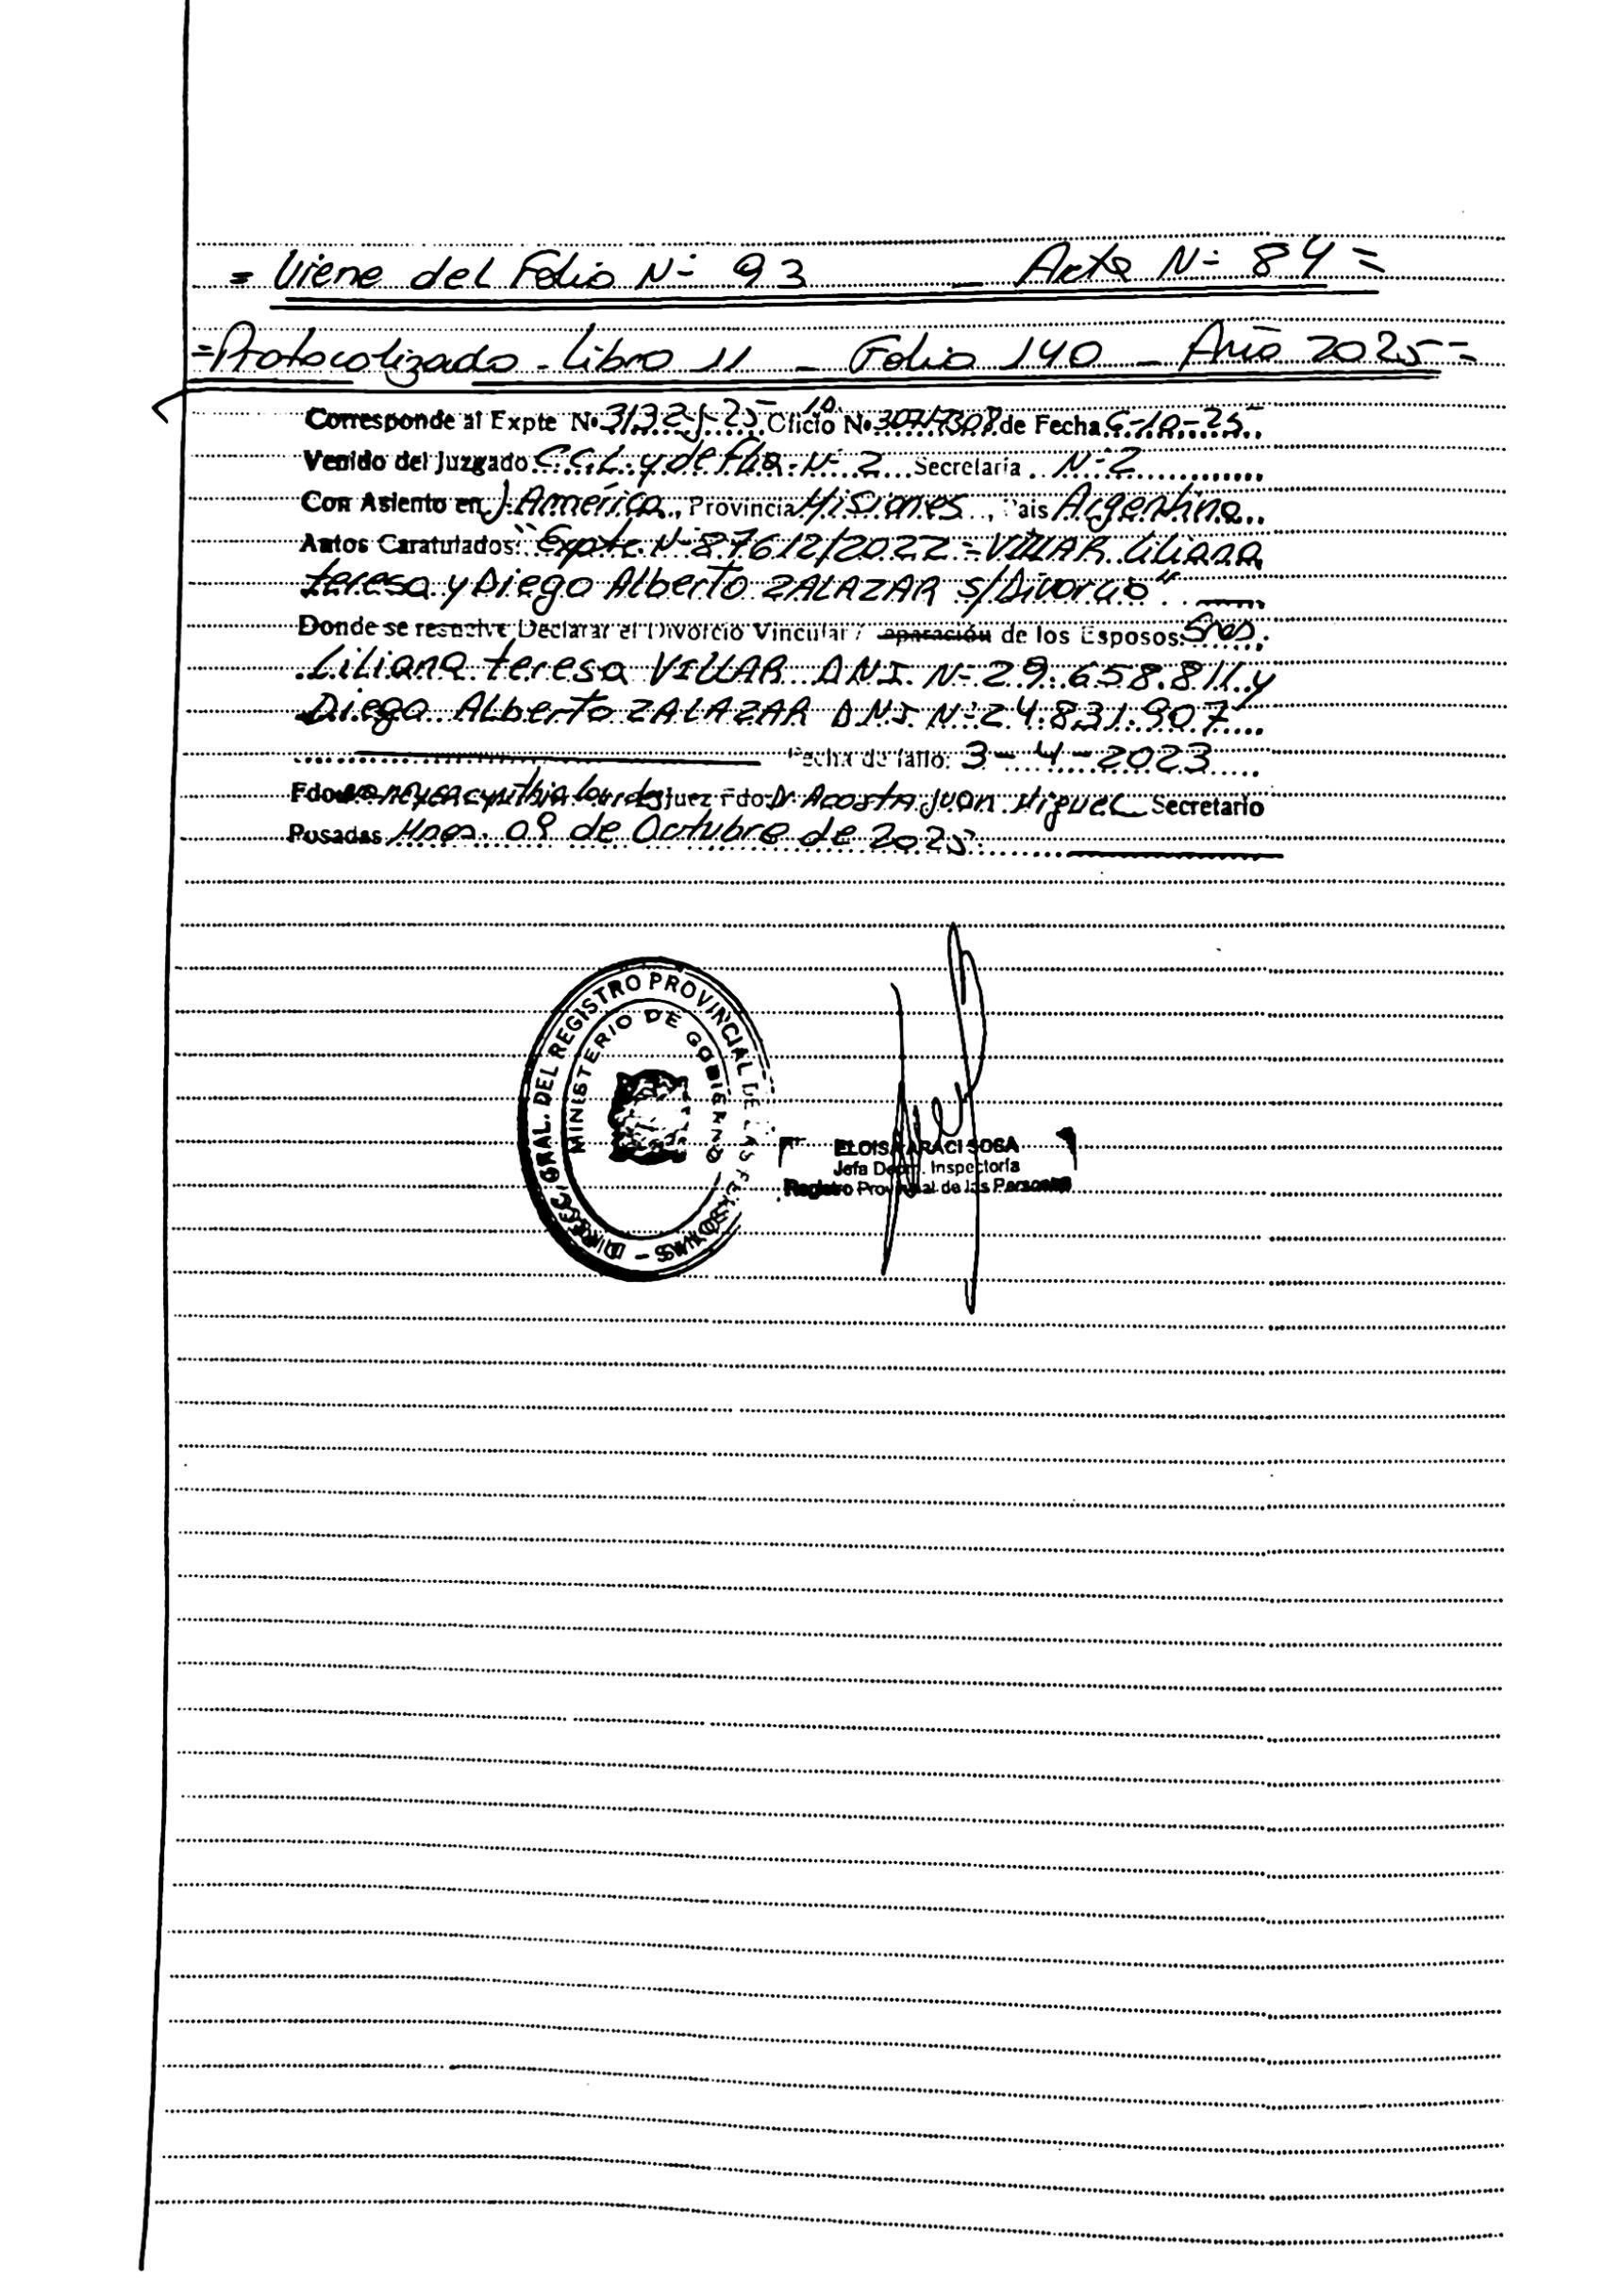 = Viene del Folio N- 93 _ Acta N- 84 =
= Protocolizado - Libro 11 - Folio 140 - Año 2025 =
Corresponde al Expte N° 3132-J-25 Oficio N° de Fecha 6-10-25
Venido del Juzgado C.C.L. y de Flia. N- 2 Secretaria N- 2
Con Asiento en J. América, Provincia Misiones, Pais Argentina
Autos Caratulados: "Expte. N- 87612/2022 = VILLAR Liliana
teresa y Diego Alberto ZALAZAR s/Divorcio"
Donde se resuelve Declarar el Divorcio Vincular / eparación de los Esposos: Sres.
Liliana teresa VILLAR D.N.I. N- 29.658.811 y
Diego Alberto ZALAZAR D.N.I. N- 24.831.907
Fecha de fallo: 3-4-2023
Fdo cynthia Lourdes Juez Fdo: Dr Acosta Juan Miguel Secretario
Posadas Mnes. 09 de Octubre de 2025
DIRECC. GRAL. DEL REGISTRO PROVINCIAL DE LAS PERSONAS -
MINISTERIO DE GOBIERNO
ELOISA ARACI SOSA
Jefa Dpto. Inspectoría
Registro Provincial de las Personas